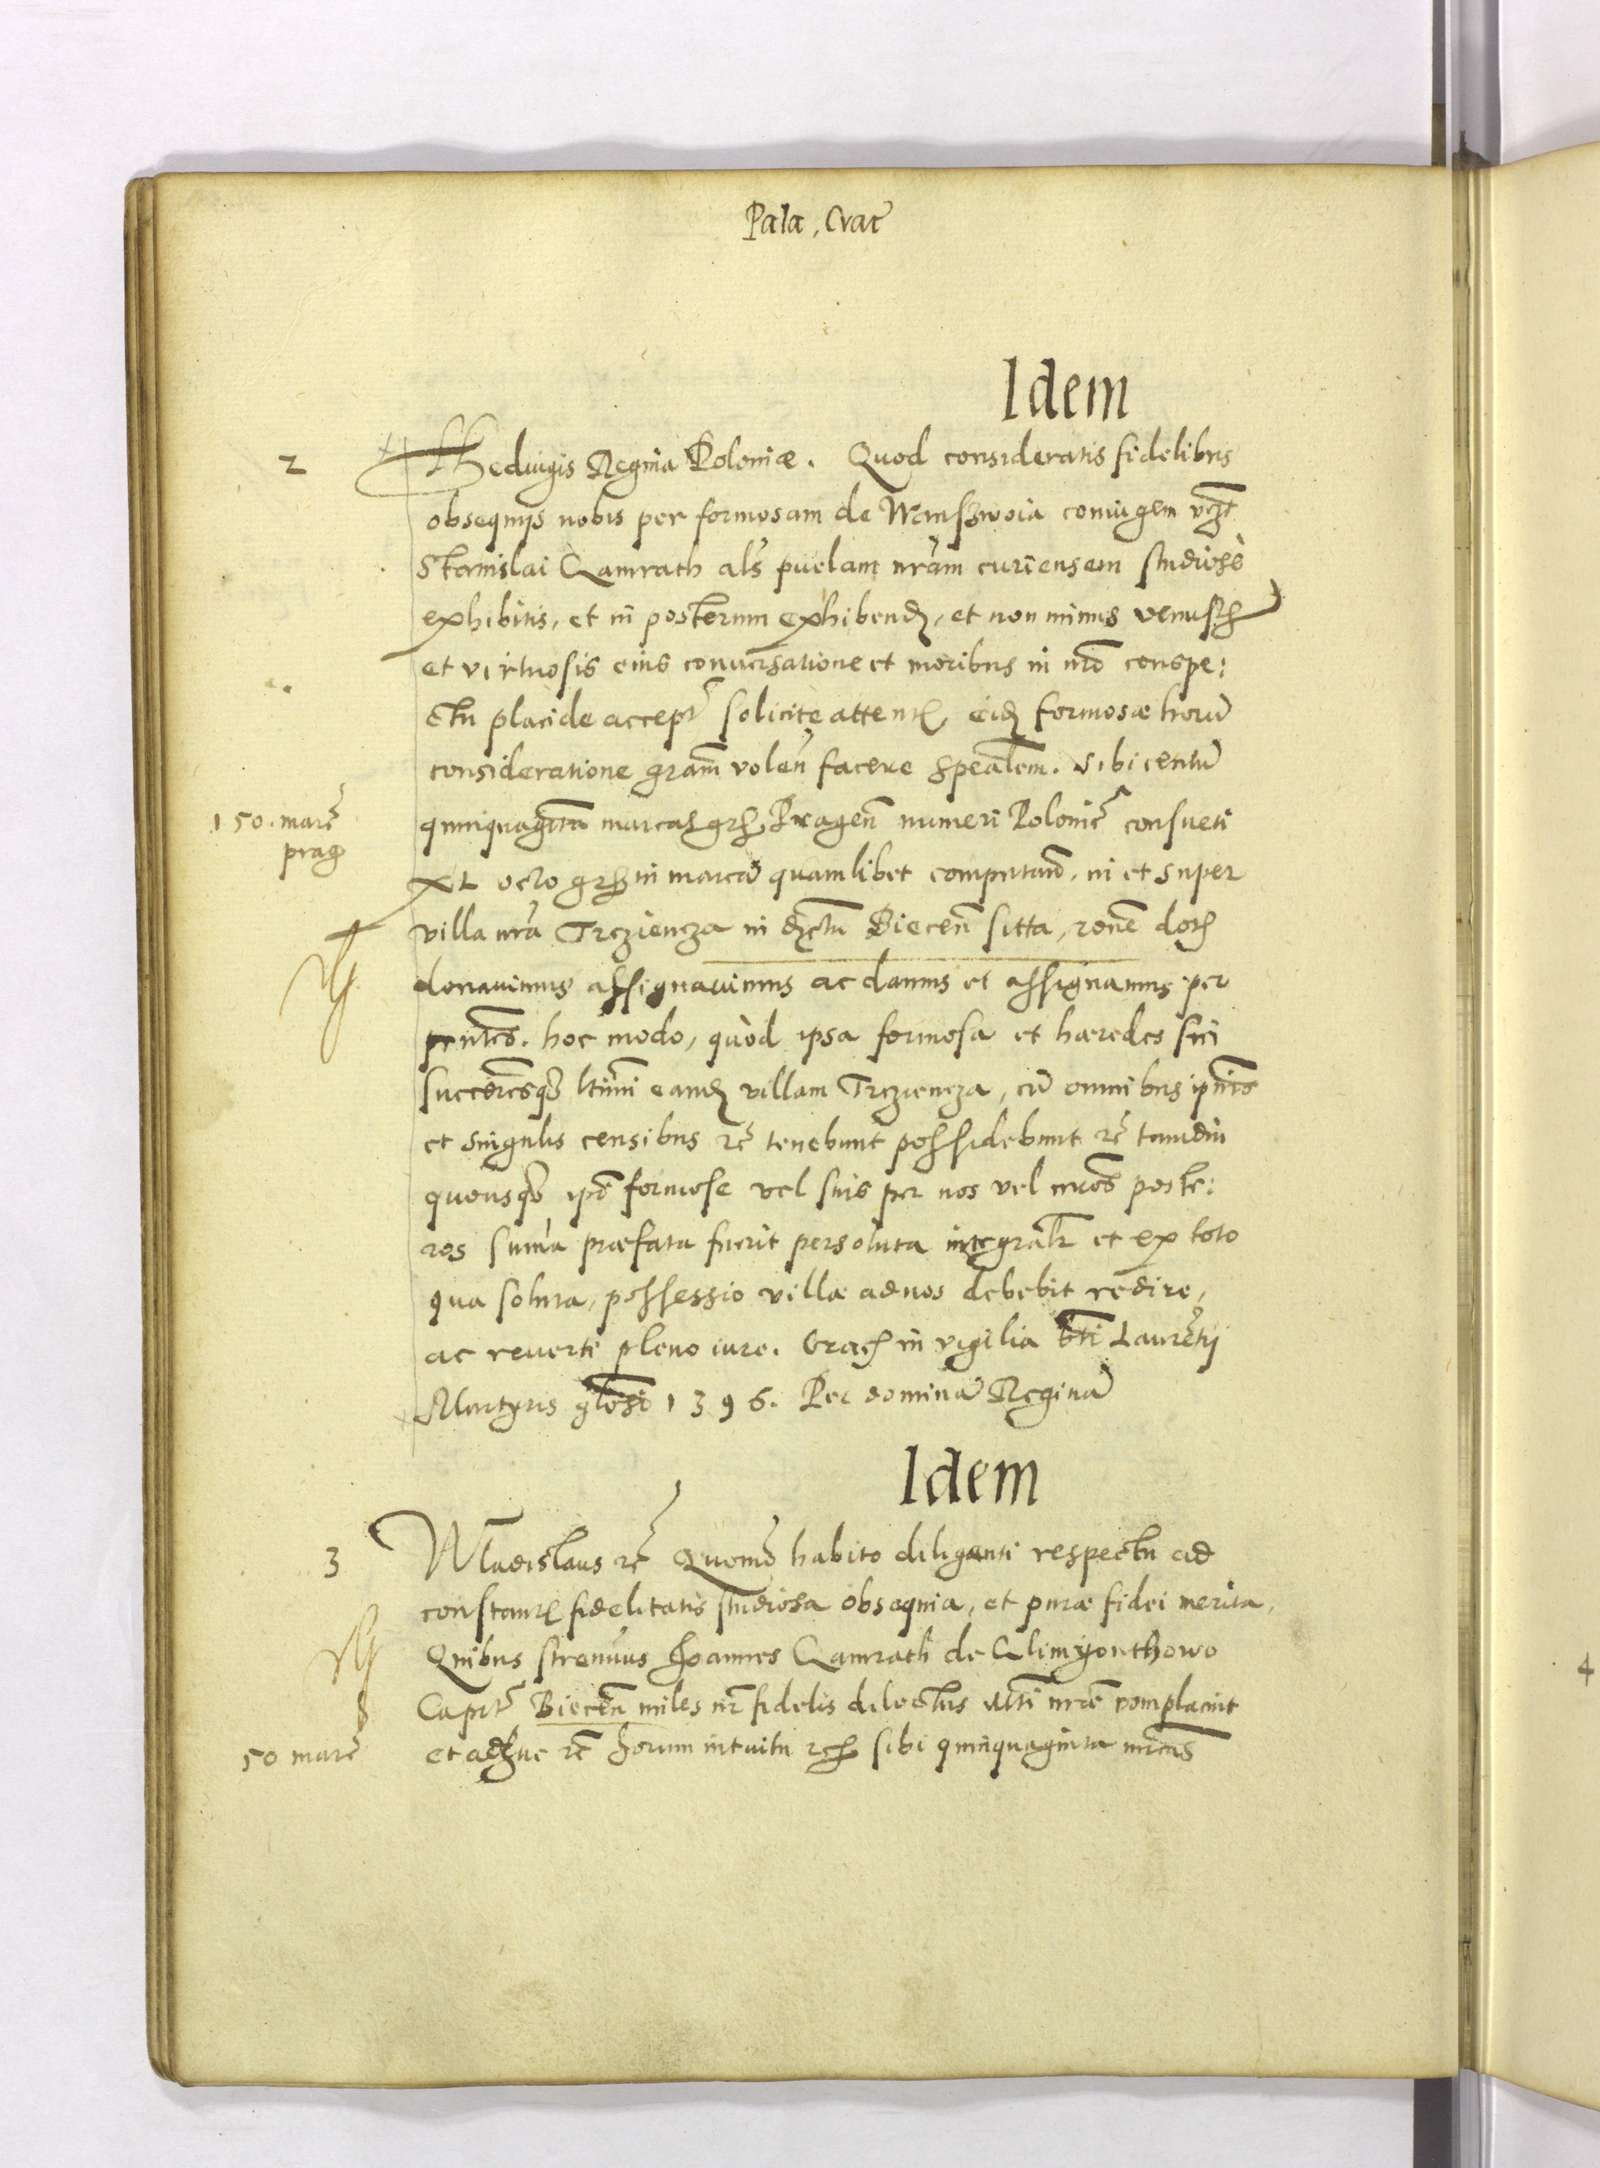 Pala. Crac̃
Idem
2
Hedvigis Regina Poloniæ. Quod consideratis fidelibus
obsequijs nobis per formosam de coniugem
Stanislai Gamrath als̃ puelam nr̃am curiensem studiosè
exhibitis, et in posterum exhibend, et non minus
et virtuosis eius conversatione et moribus in nr̃o conspe:
ctu placide accept̃ solicite attent, eid formosæ horũ
consideratione gram̃ volen̄ facere speal̃em. sibi centũ
150. marc̃
prag
quinquaginta marcas gr Pragen̄ numeri Polonic̃ consueti
XL octo gr in marcã quamlibet computan̄d, in et super
villa nr̃a Trzciencza in Biecen̄ sitta, ron̄e dot
donavimus assignavimus ac damus et assignamus per
pn̄tes. hoc modo, quòd ipsa formosa et hæredes sui
ltimi eand villam Trzciencza, cũ omnibus
et singulis censibus rc̃ tenebunt possidebunt rc̃ tamdiu
quousq ip̃e formose vel suis per nos vel nr̃os poste:
ros sum̃a præfata fuerit persoluta integral̃r et ex toto
qua soluta, possessio villæ ad nos debebit redire,
ac reverti pleno iure. Crac in vigilia bt̃i Laurẽtij
Martyris glosi 1396. Per dominã Reginã
Idem
3
Wladislaus rc̃ Quomõ habito diligenti respectu ad
constant fidelitatis studiosa obsequia, et puræ fidei merita,
Quibus strenuus Joannes Gamrath de Climyonthowo
Capit̃ Biecen̄ miles nr̃ fidelis dilectus M̃ti nr̃e complacuit
50 marc̃
et adhuc rc̃ horum intuitu sibi quinquaginta mr̃cas
4